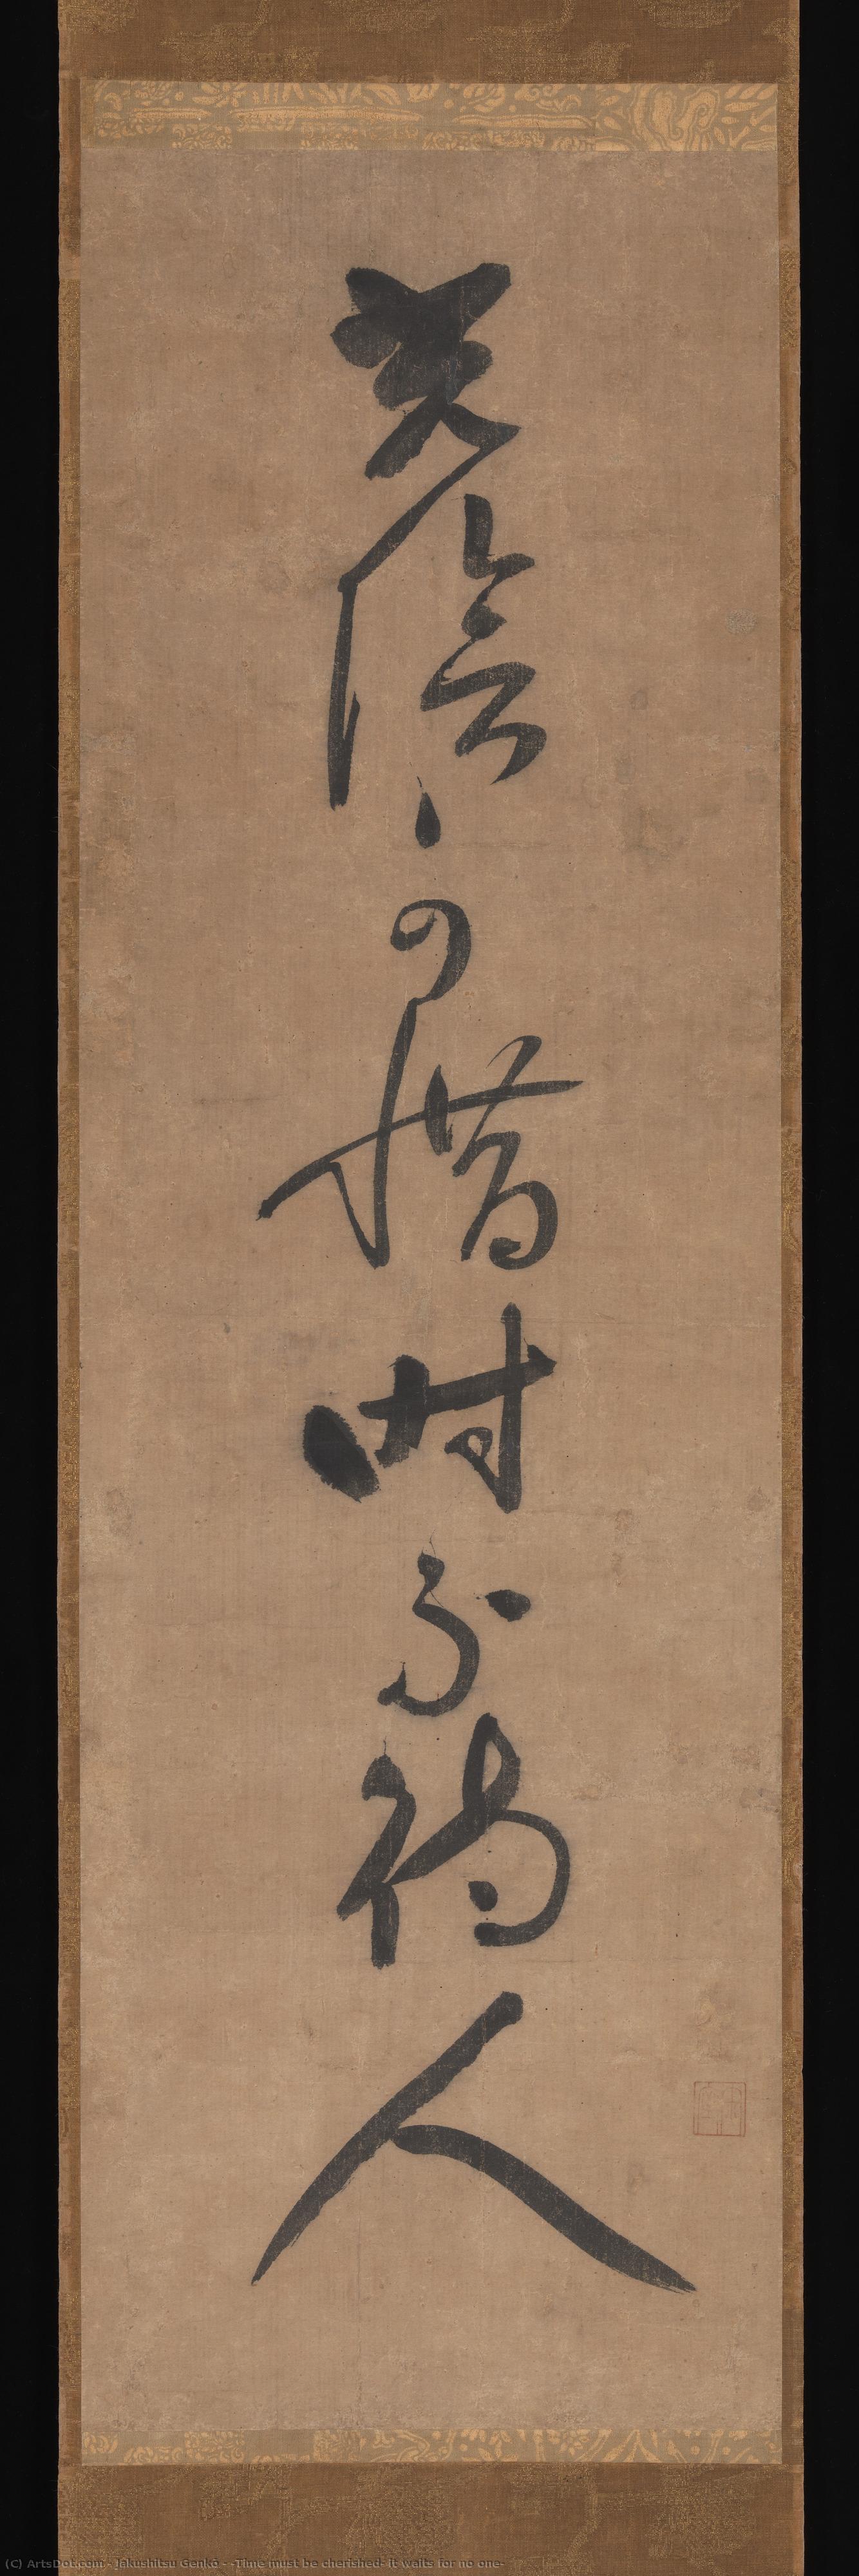 光陰可惜時不待人
(C) ArtsDot.com - Jakushitsu Genkō - -Time must be cherished- it waits for no one-